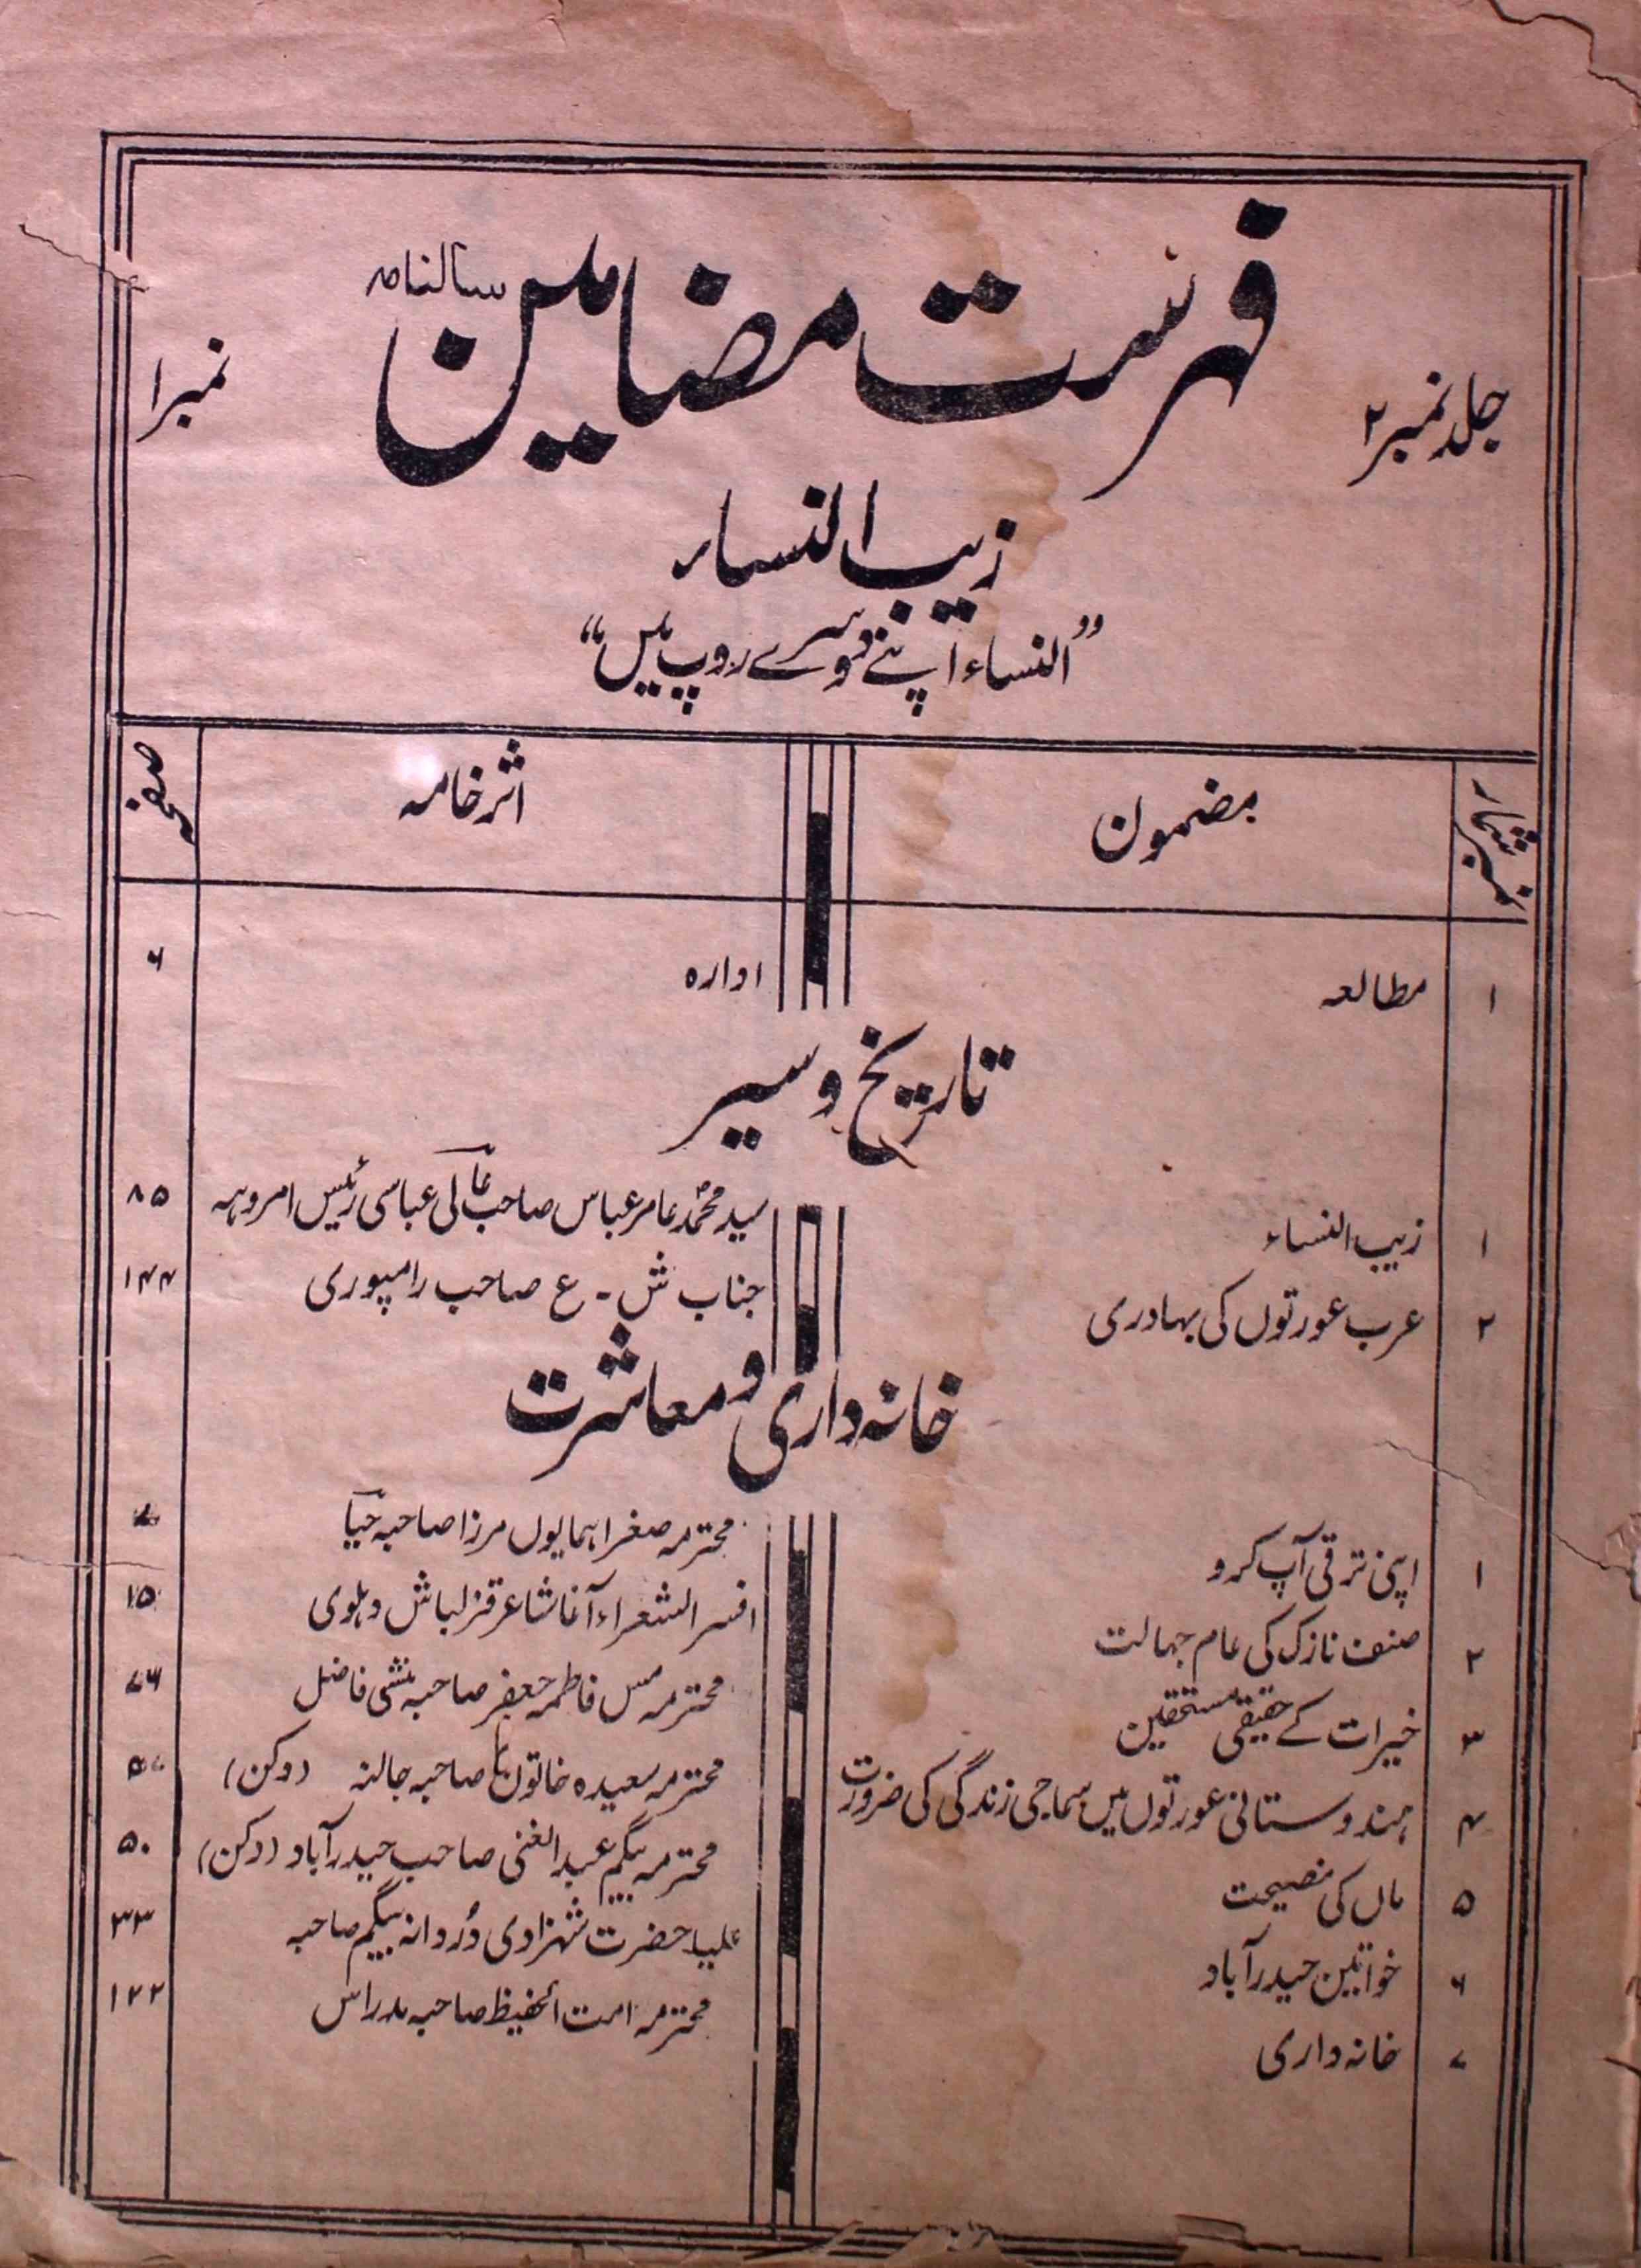 فہرست مضامین سالنامہ
جلد نمبر ۲
نمبر ۱
زیب النساء
"النساء اپنے دوسرے روپ میں"
نمبر شمار مضمون اثر خامہ صفحہ
۱ مطالعہ ادارہ ۶
تاریخ و سیر
۱ زیب النساء سید محمد عامر عباس صاحب عالی عباسی رئیس امروہہ ۸۵
۲ عرب عورتوں کی بہادری جناب ش - ع صاحب رامپوری ۱۴۴
خانہ داری و معاشرت
۱ اپنی ترقی آپ کرو محترمہ صغرا ہمایوں مرزا صاحبہ حیا ۷
۲ صنف نازک کی عام جہالت افسر الشعراء آغا شاعر قزلباش دہلوی ۱۵
۳ خیرات کے حقیقی مستحقین محترمہ مس فاطمہ جعفر صاحبہ منشی فاضل ۷۶
۴ ہندوستانی عورتوں میں سماجی زندگی کی ضرورت محترمہ سعیدہ خاتون صاحبہ جالنہ (دکن) ۵۷
۵ ماں کی نصیحت محترمہ بیگم عبد الغنی صاحب حیدرآباد (دکن) ۵۰
۶ خواتین حیدرآباد علیا حضرت شہزادی دُردانہ بیگم صاحبہ ۳۳
۷ خانہ داری محترمہ امت الحفیظ صاحبہ مدراس ۱۲۲